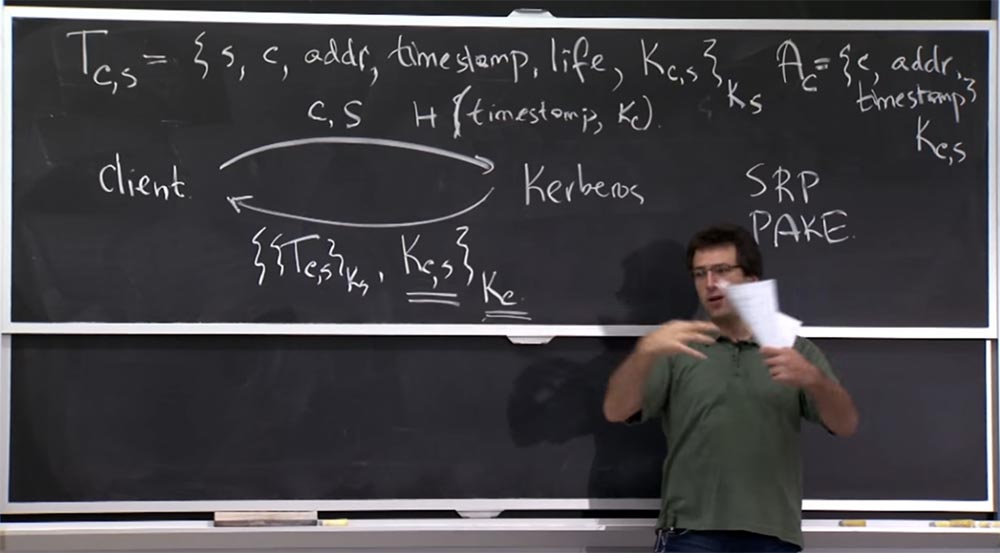 T c,s = { s, c, addr, timestamp, life, K c,s } K s
A c = { c, addr, timestamp } K c,s
c, s H (timestamp, K c).
client.
Kerberos
SRP
PAKE.
{ { T c,s } K s , K c,s } K c